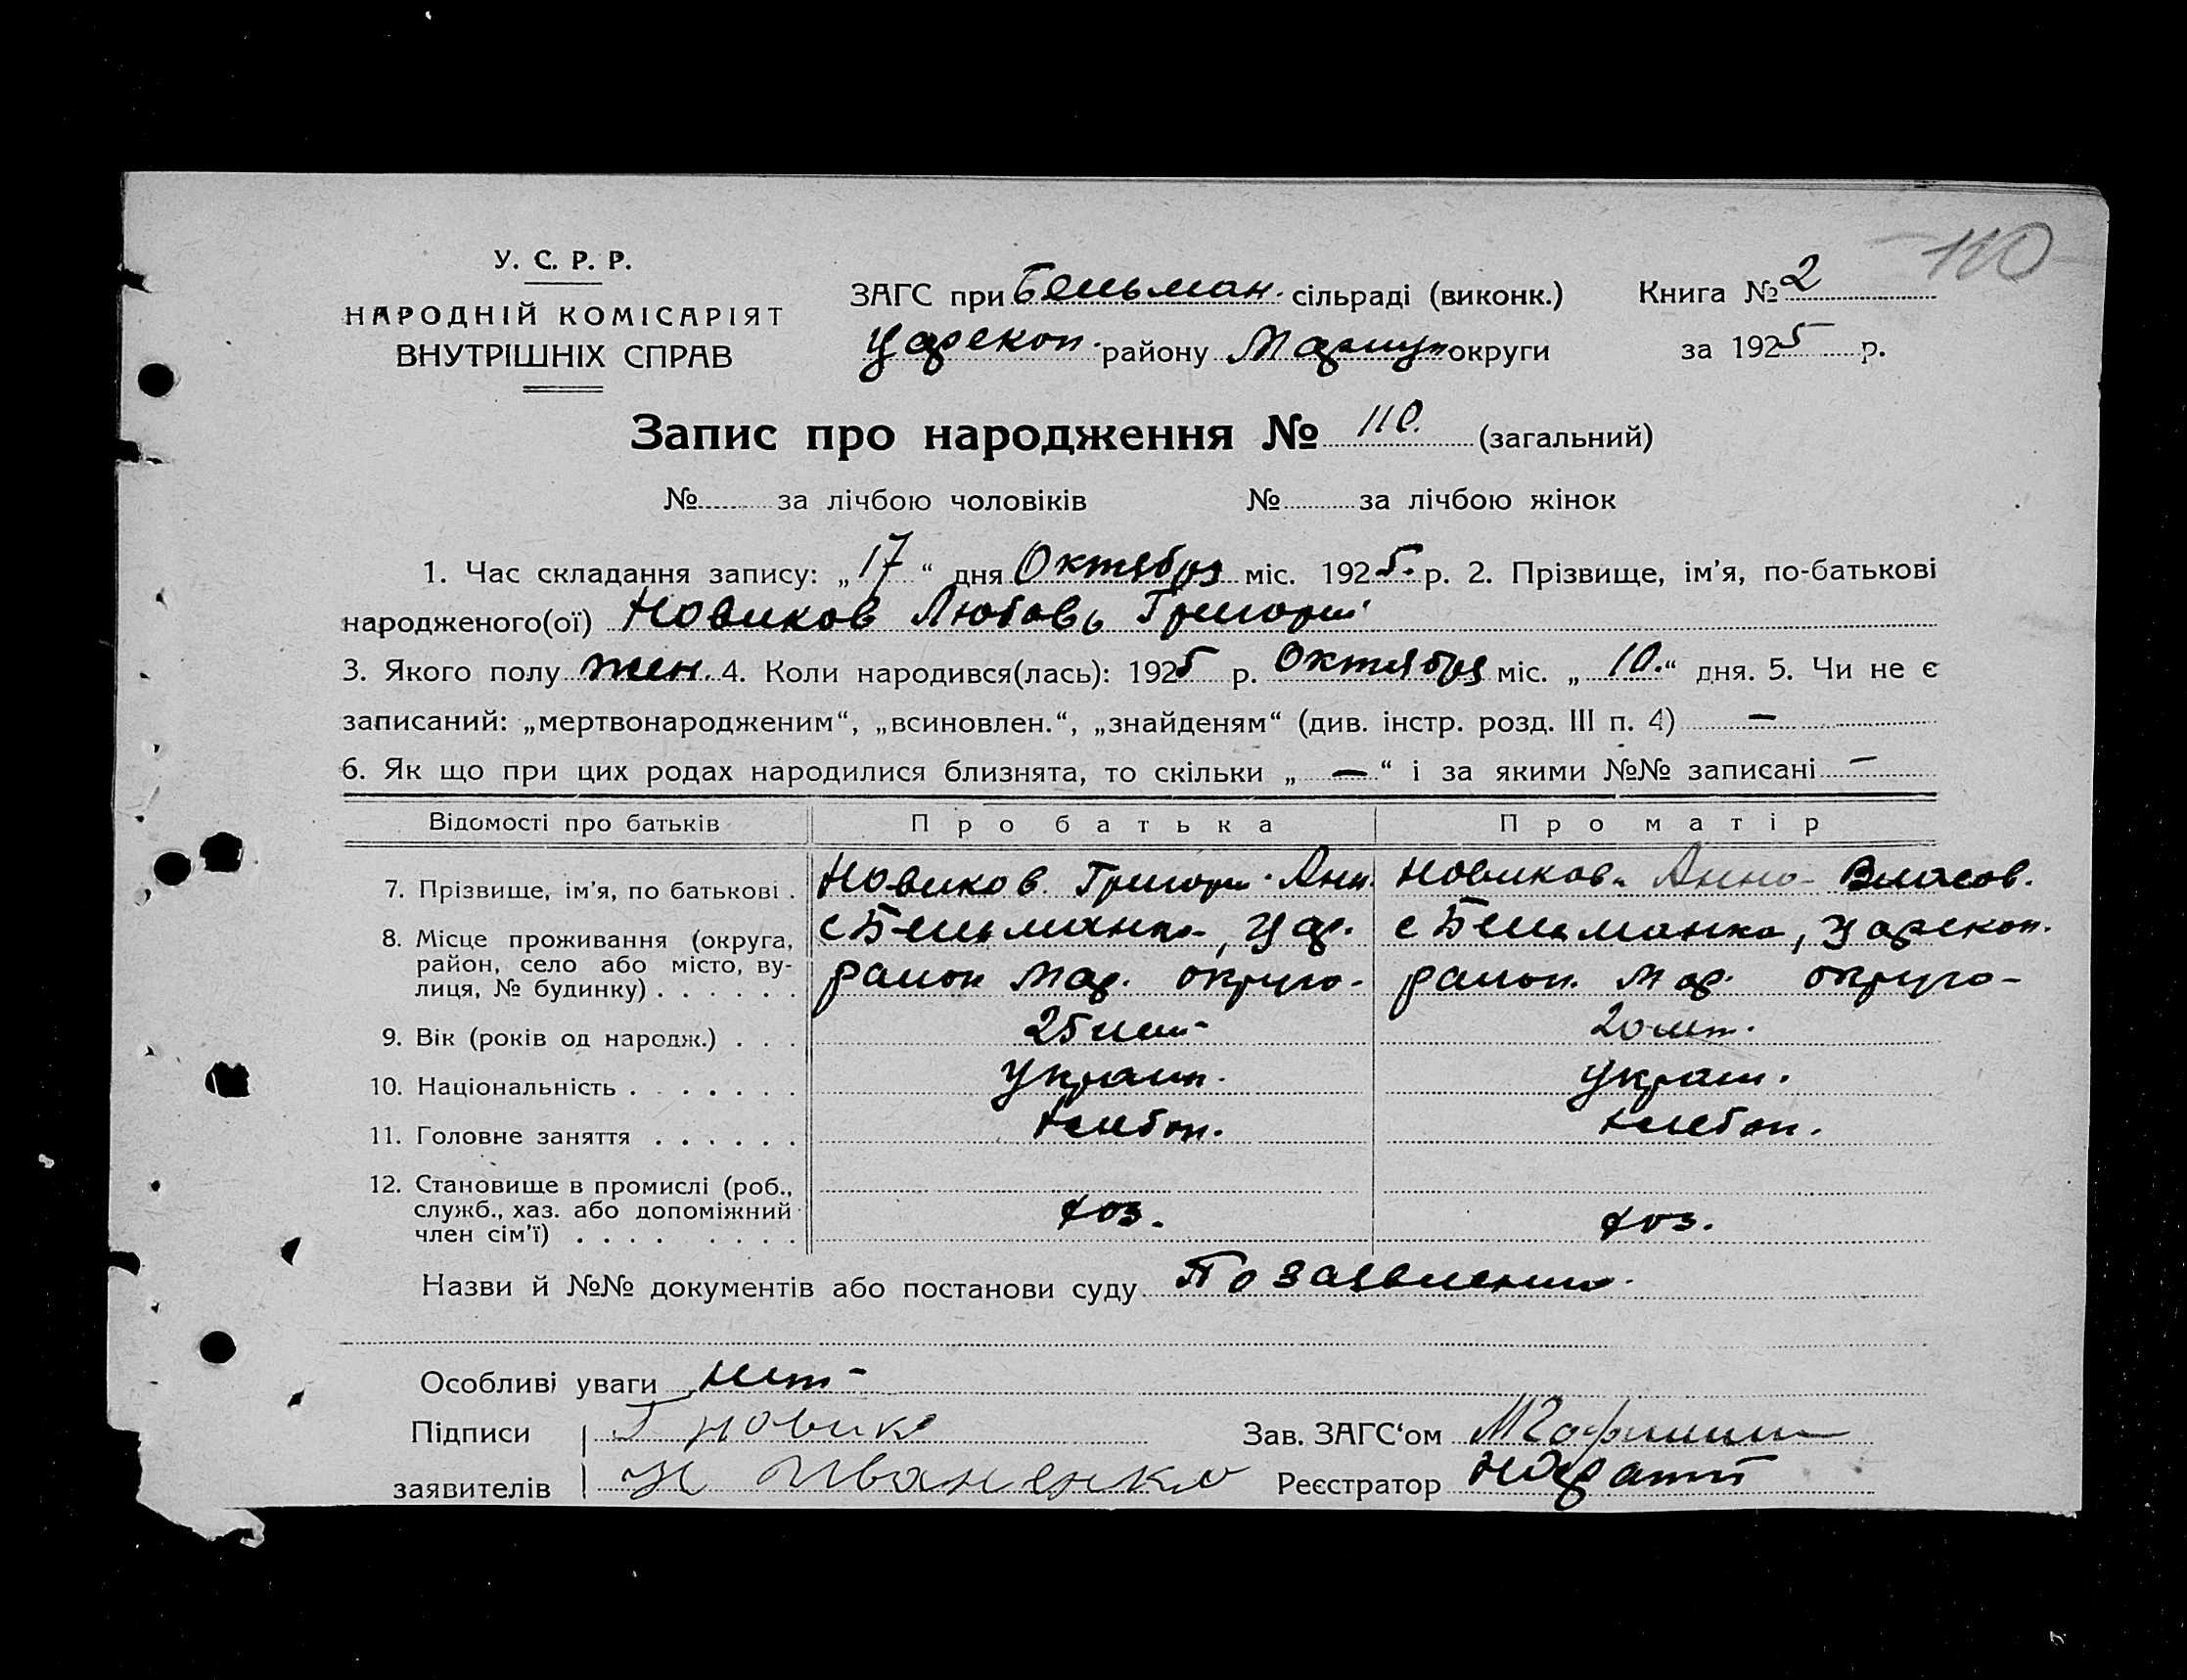 110
У. С. Р. Р.
НАРОДНІЙ КОМІСАРІЯТ
ВНУТРІШНІХ СПРАВ
ЗАГС при Бельман. сільраді (виконк.)
Царекон. району Мариуп округи
Книга № 2
за 1925 р.
Запис про народження № 110. (загальний)
№ за лічбою чоловіків № за лічбою жінок
1. Час складання запису: „17“ дня Октября міс. 1925. р. 2. Прізвище, ім’я, по-батькові
народженого(ої) Новиков Любовь Григорьи
3. Якого полу жен. 4. Коли народився(лась): 1925 р. Октября міс. „10.“ дня. 5. Чи не є
записаний: „мертвонародженим“, „всиновлен.“, „знайденям“ (див. інстр. розд. III п. 4) —
6. Як що при цих родах народилися близнята, то скільки „—“ і за якими №№ записані —
Відомості про батьків Про батька Про матір
7. Прізвище, ім’я, по батькові . Новиков Григори Новиков. Анна Власов.
8. Місце проживання (округа, район, село або місто, вулиця, № будинку) . . . . . .
с Бельманка, Цар. район Мар. округа
с Бельманка, Царекон. район. Мар. округа
9. Вік (років од народж.) . . . 25 лет 20 лет.
10. Національність . . . . . . . Украин. Украин.
11. Головне заняття . . . . . . Хлебоп. Хлебоп.
12. Становище в промислі (роб., служб., хаз. або допоміжний член сім’ї) . . . . . . . .
хоз. хоз.
Назви й №№ документів або постанови суду По заявлению
Особливі уваги нет
Підписи Г Новико Зав. ЗАГС‘ом
заявителів Иваненко Реєстратор